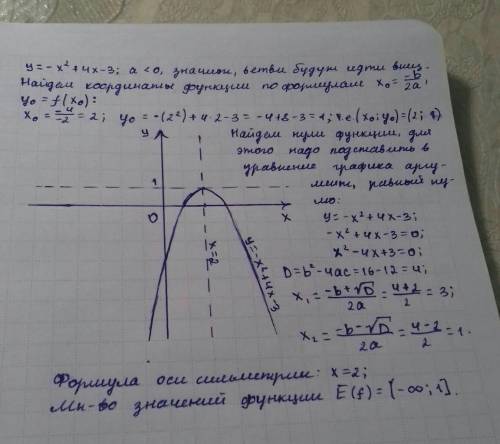 y=-x²+4x-3; a<0, значит, ветви будут идти вниз.
Найдем координаты функции по формулам x₀=-b/2a,
y₀=f(x₀):
x₀=-4/-2=2; y₀=-(2²)+4·2-3=-4+8-3=1; т.е.(x₀;y₀)=(2; 1)
Найдем нули функции, для
этого надо подставить в
уравнение графика аргу-
мент, равный ну-
лю:
y=-x²+4x-3;
-x²+4x-3=0;
x²-4x+3=0;
D=b²-4ac=16-12=4;
x₁=-b+√D/2a=4+2/2=3;
x₂=-b-√D/2a=4-2/2=1.
y
1
0
x
x=2
y=-x²+4x-3
Формула оси симметрии: x=2;
Мн-во значений функции E(f)=[-∞;1].